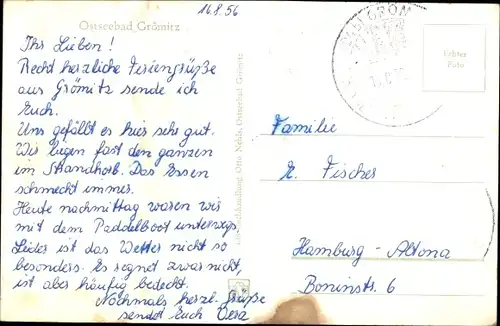 16.8.56
Ostseebad Grömitz
Ihr Lieben!
Recht herzliche Feriengrüße
aus Grömitz sende ich
Euch.
Uns gefällt es hier sehr gut.
Wir liegen fast den ganzen
im Strandkorb. Das Essen
schmeckt immer.
Heute nachmittag waren wir
mit dem Paddelboot unterwegs.
Leider ist das Wetter nicht so
besonders. Es regnet zwar nicht,
ist aber häufig bedeckt.
Nochmals herzl. Grüße
sendet Euch
Otto Ostseebad Grömitz
Echtes
Foto
Familie
E. Fischer
Hamburg-Altona
Boninstr. 6